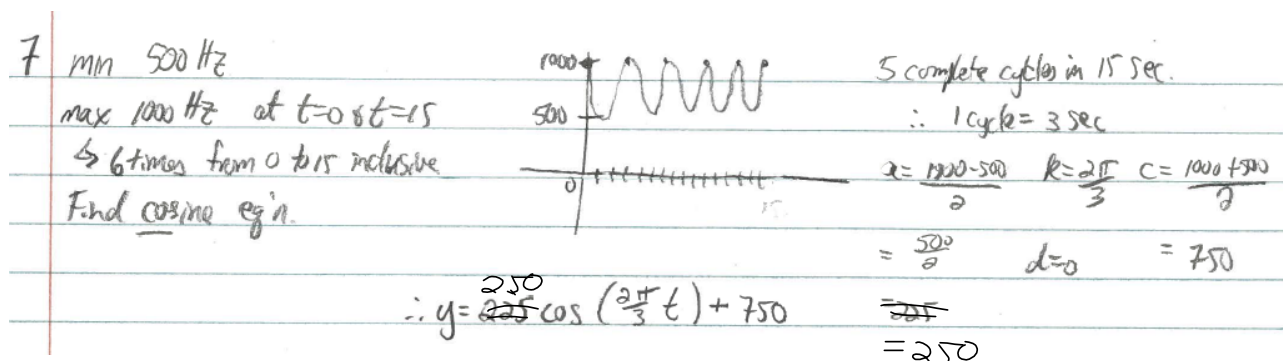 7 min 500 Hz
max 1000 Hz at t=0 & t=15
↳ 6 times from 0 to 15 inclusive
Find cosine eq'n.
1000
500
0
15
5 complete cycles in 15 sec.
∴ 1 cycle = 3 sec
a = (1000-500)/2 k = 2π/3 c = (1000+500)/2
= 500/2 d=0 = 750
= 225
= 250
250
∴ y = 225 cos (2π/3 t) + 750